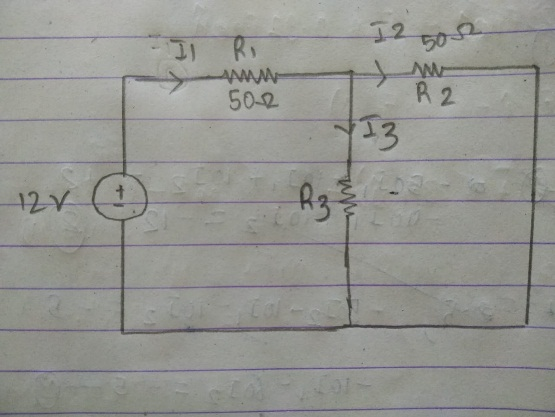 I1
R1
50Ω
I2
50Ω
R2
I3
12V
+
-
R3